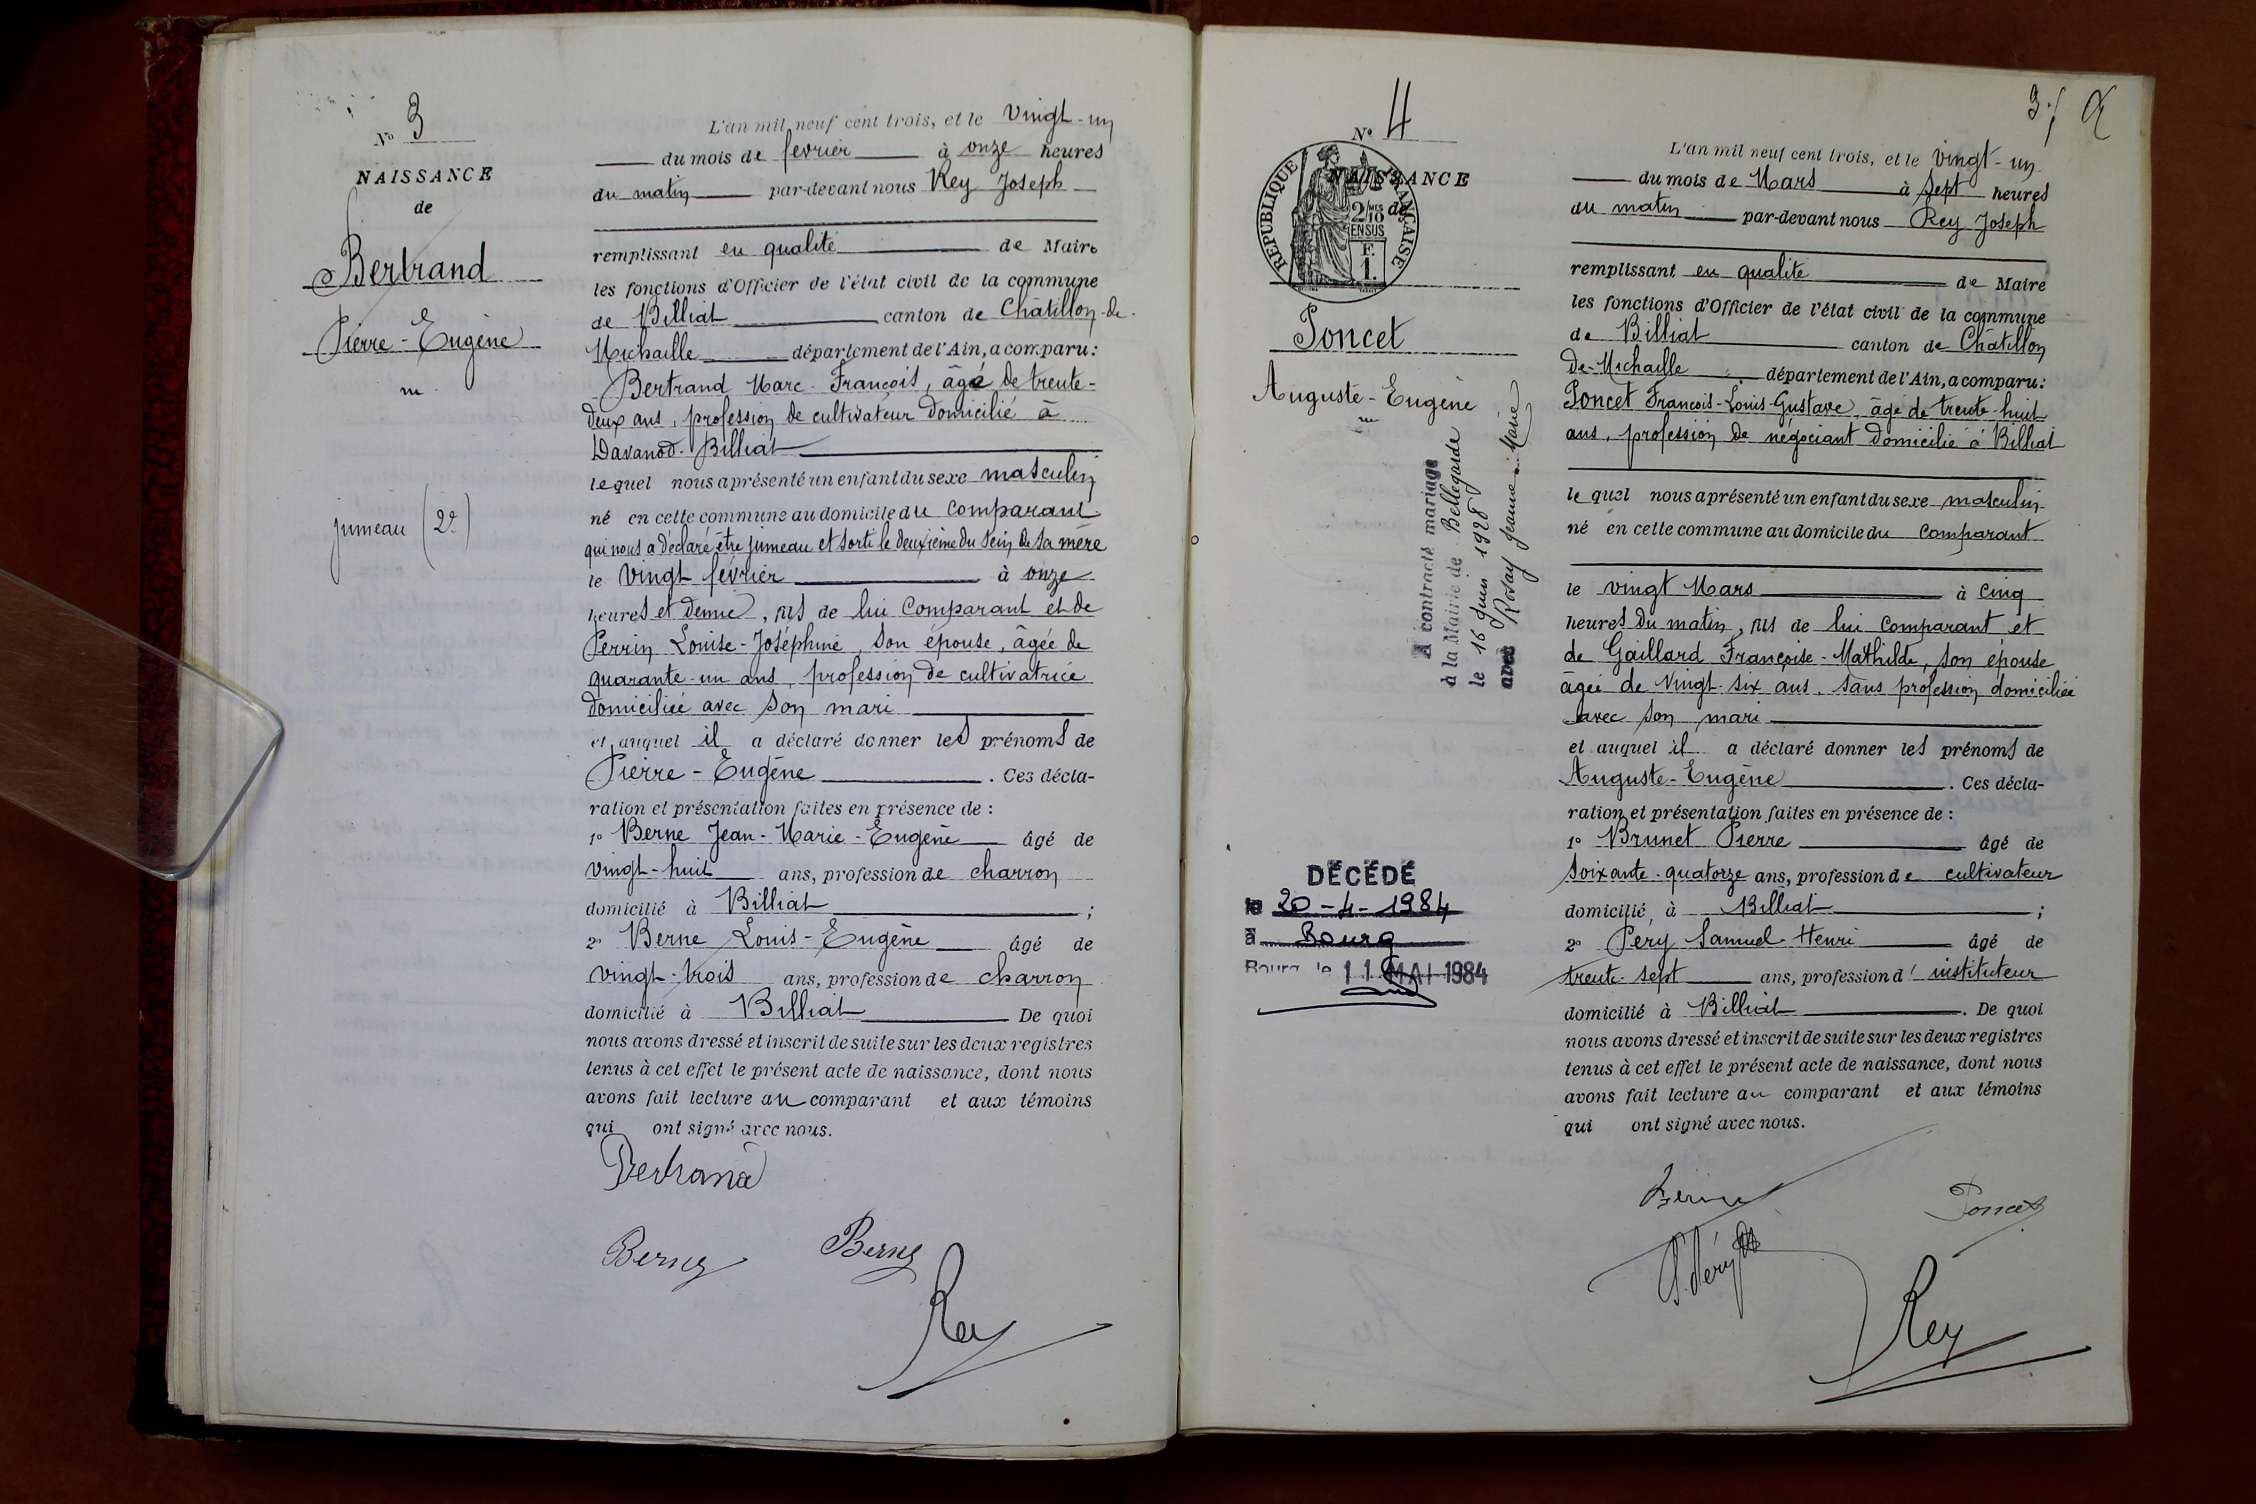 N° 3
NAISSANCE
de
Bertrand
Pierre-Eugène
m.
jumeau (2e)
L'an mil neuf cent trois, et le vingt-un
du mois de février à onze heures
du matin par-devant nous Rey Joseph
remplissant en qualité de Maire
les fonctions d'Officier de l'état civil de la commune
de Billiat canton de Châtillon-de-
Michaille département de l'Ain, a comparu:
Bertrand Marc-François, âgé de trente-
deux ans, profession de cultivateur domicilié à
Davanod-Billiat
lequel nous a présenté un enfant du sexe masculin
né en cette commune au domicile du comparant
qui nous a déclaré être jumeau et sorti le deuxième du sein de sa mère
le vingt février à onze
heures et demie, fils de lui comparant et de
Perrin Louise-Joséphine, son épouse, âgée de
quarante-un ans, profession de cultivatrice
domiciliée avec son mari
et auquel il a déclaré donner les prénoms de
Pierre-Eugène. Ces décla-
ration et présentation faites en présence de :
1° Berne Jean-Marie-Eugène âgé de
vingt-huit ans, profession de charron
domicilié à Billiat ;
2° Berne Louis-Eugène âgé de
vingt-trois ans, profession de charron
domicilié à Billiat De quoi
nous avons dressé et inscrit de suite sur les deux registres
tenus à cet effet le présent acte de naissance, dont nous
avons fait lecture au comparant et aux témoins
qui ont signé avec nous.
Bertrand
Berne Berne
Rey
3
N° 4
NAISSANCE
de
RÉPUBLIQUE FRANÇAISE
2/10 MES
EN SUS
F.
1.
Poncet
Auguste-Eugène
m
A contracté mariage
à la Mairie de Bellegarde
le 16 Juin 1928
avec Rosay Jeanne-Marie
DÉCÉDÉ
le 20-4-1984
à Bourg
Bourg le 11 MAI 1984
L'an mil neuf cent trois, et le vingt-un
du mois de Mars à sept heures
du matin par-devant nous Rey Joseph
remplissant en qualité de Maire
les fonctions d'Officier de l'état civil de la commune
de Billiat canton de Châtillon
de-Michaille département de l'Ain, a comparu:
Poncet François-Louis-Gustave, âgé de trente-huit
ans, profession de négociant domicilié à Billiat
lequel nous a présenté un enfant du sexe masculin
né en cette commune au domicile du comparant
le vingt Mars à cinq
heures du matin, fils de lui comparant et
de Gaillard Françoise-Mathilde, son épouse
âgée de vingt-six ans, sans profession domiciliée
avec son mari
et auquel il a déclaré donner les prénoms de
Auguste-Eugène. Ces décla-
ration et présentation faites en présence de :
1° Brunet Pierre âgé de
soixante-quatorze ans, profession de cultivateur
domicilié à Billiat ;
2° Pery Samuel-Henri âgé de
trente-sept ans, profession d'instituteur
domicilié à Billiat. De quoi
nous avons dressé et inscrit de suite sur les deux registres
tenus à cet effet le présent acte de naissance, dont nous
avons fait lecture au comparant et aux témoins
qui ont signé avec nous.
Poncet
S. Péry
Rey